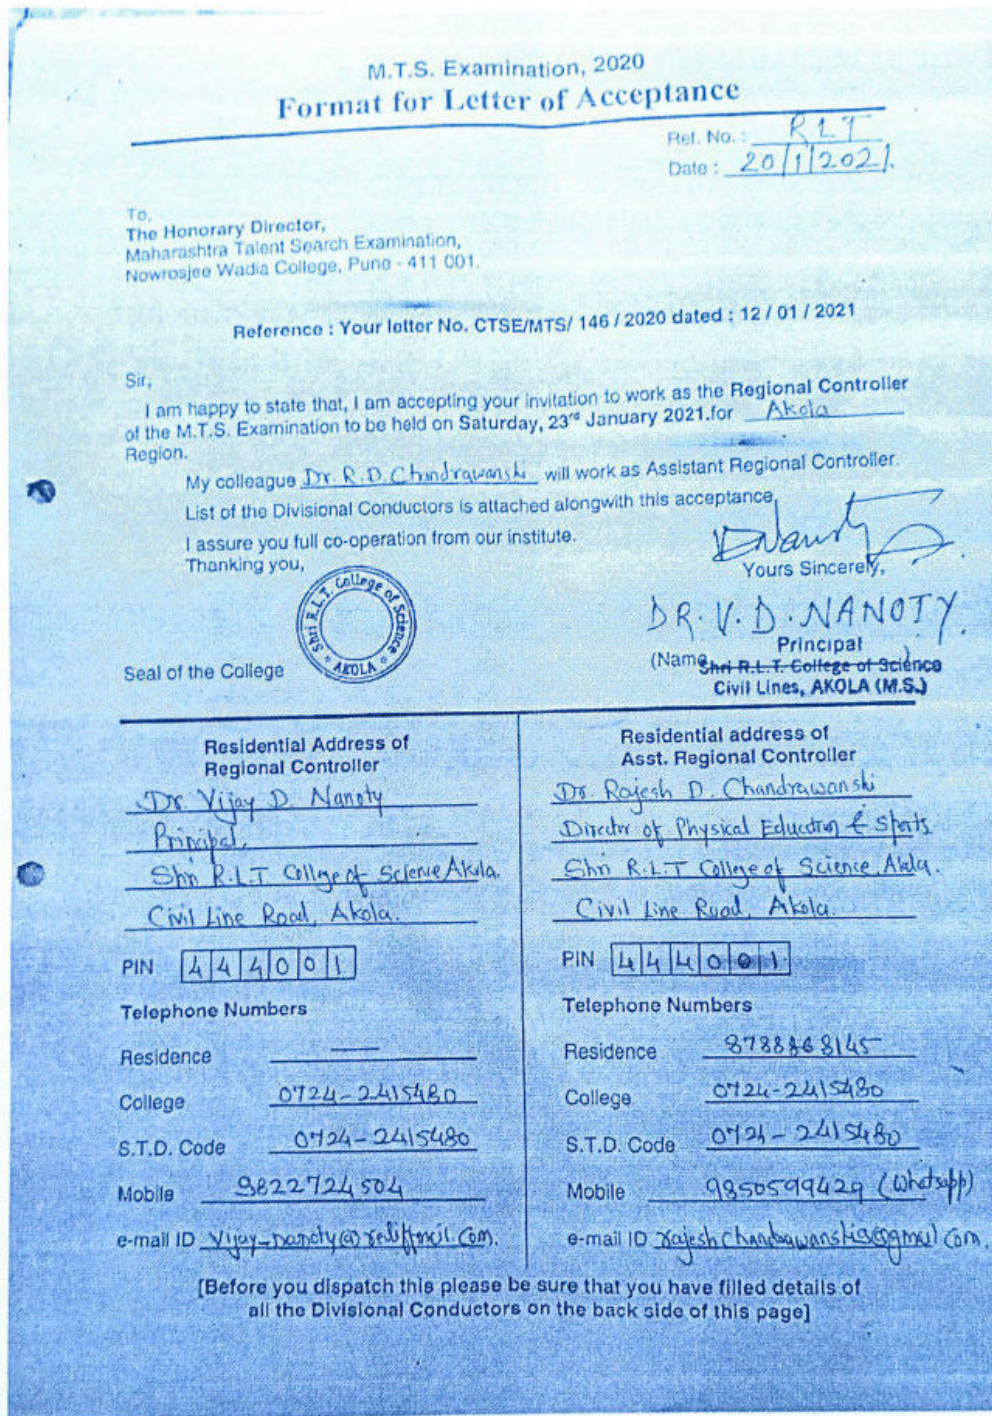 M.T.S. Examination, 2020
Format for Letter of Acceptance
Ref. No. : RLT
Date : 20/1/2021.
To,
The Honorary Director,
Maharashtra Talent Search Examination,
Nowrosjee Wadia College, Pune - 411 001.
Reference : Your letter No. CTSE/MTS/ 146 / 2020 dated : 12 / 01 / 2021
Sir,
I am happy to state that, I am accepting your invitation to work as the Regional Controller
of the M.T.S. Examination to be held on Saturday, 23rd January 2021.for Akola
Region.
My colleague Dr. R.D. Chandrawanshi will work as Assistant Regional Controller.
List of the Divisional Conductors is attached alongwith this acceptance.
I assure you full co-operation from our institute.
Thanking you,
Yours Sincerely,
Shri R.L.T. College of Science
AKOLA
DR. V. D. NANOTY.
Principal
Seal of the College
(Name )
Shri R.L.T. College of Science
Civil Lines, AKOLA (M.S.)
Residential Address of
Regional Controller
Dr. Vijay D. Nanoty
Principal,
Shri R.L.T College of Science Akola.
Civil Line Road, Akola.
PIN 444001
Telephone Numbers
Residence —
College 0724-2415480
S.T.D. Code 0724-2415480
Mobile 9822724504
e-mail ID vijay_nanoty@rediffmail.com.
Residential address of
Asst. Regional Controller
Dr. Rajesh D. Chandrawanshi
Director of Physical Education & Sports
Shri R.L.T College of Science, Akola.
Civil Line Road, Akola.
PIN 444001
Telephone Numbers
Residence 8788868145
College 0724-2415480
S.T.D. Code 0724-2415480
Mobile 9850599429 (Whatsapp)
e-mail ID
[Before you dispatch this please be sure that you have filled details of
all the Divisional Conductors on the back side of this page]